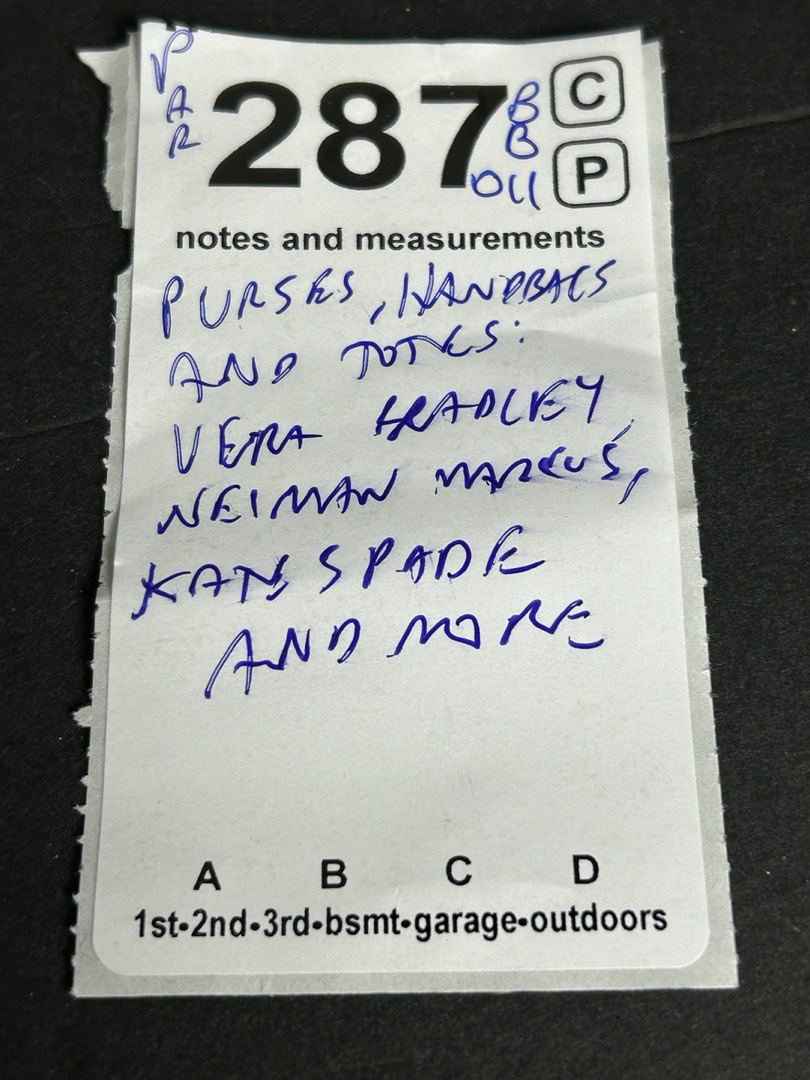 PAR
287
BB
011
C
P
notes and measurements
PURSES, HANDBAGS
AND TOTES:
VERA BRADLEY,
NEIMAN MARCUS,
KATE SPADE
AND MORE
A B C D
1st•2nd•3rd•bsmt•garage•outdoors